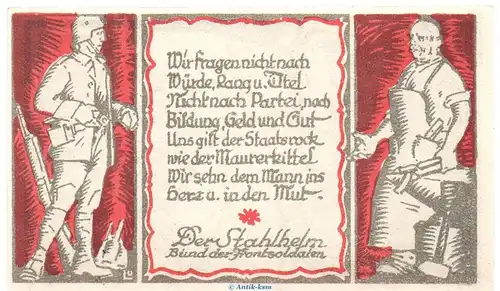 Wir fragen nicht nach
Würde, Rang u. Titel
Nicht nach Partei, nach
Bildung, Geld und Gut
Uns gilt der Staatsrock
wie der Maurerkittel
Wir sehn dem Mann ins
Herz u. in den Mut.
Der Stahlhelm
Bund der Frontsoldaten
© Antik-kam